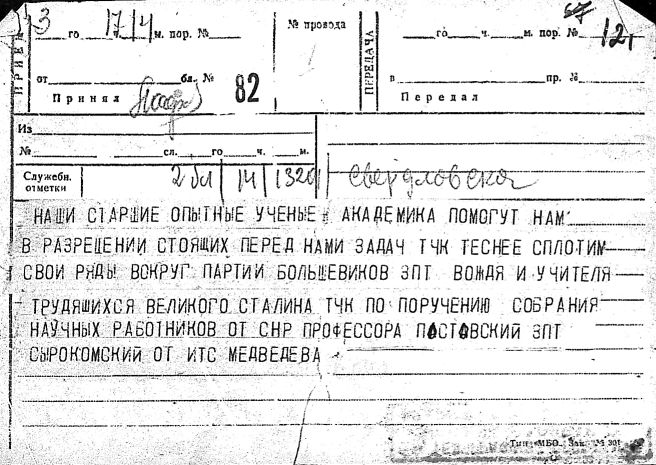 3 го 17 ч. 14 м. пор. №
№ провода
го ч. м. пор. № 12,
ПРИЕМ
ПЕРЕДАЧА
от бл. № 82
в пр. №
Принял
Передал
Из
№ сл. го ч. м.
Служебн. отметки 2 бл 14 1320 Свердловска
НАШИ СТАРШИЕ ОПЫТНЫЕ УЧЕНЫЕ АКАДЕМИКА ПОМОГУТ НАМ
В РАЗРЕЦЕНИИ СТОЯЩИХ ПЕРЕД НАМИ ЗАДАЧ ТЧК ТЕСНЕЕ СПЛОТИМ
СВОИ РЯДЫ ВОКРУГ ПАРТИИ БОЛЬШЕВИКОВ ЗПТ ВОЖДЯ И УЧИТЕЛЯ
ТРУДЯШИХСЯ ВЕЛИКОГО СТАЛИНА ТЧК ПО ПОРУЧЕНИЮ СОБРАНИЯ
НАУЧНЫХ РАБОТНИКОВ ОТ СНР ПРОФЕССОРА ПАСТОВСКИЙ ЗПТ
СЫРОКОМСКИЙ ОТ ИТС МЕДВЕДЕВА
Тип. «МБО». Зак. № 301